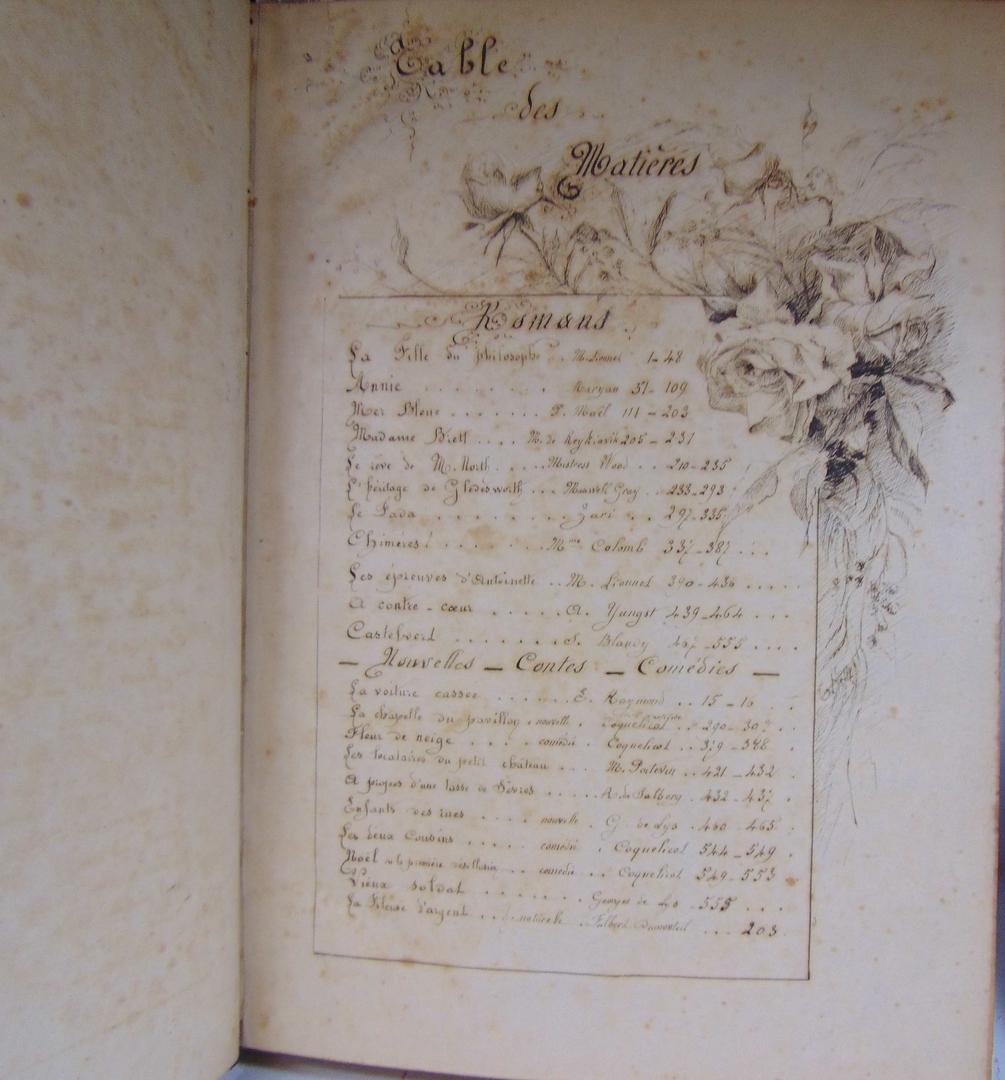 Table
des
Matières
Romans
La Fille du philosophe . M. Lionnet 1-48
Annie . . . . . . . Maryan 51-109
Mer Bleue . . . . . . . P. Maël 111-203
Madame Brett . . . . M. de Reykiavik 205-237
Le rêve de M. North . . . . Mistress Wood . . 210-235
L'héritage de Gledesworth . . . Maxwell Gray . 233-293
Le Fada . . . . . . . . . Zari . . 297-335
Chimères! . . . . . . . Mme Colomb 337-387 . . .
Les épreuves d'Antoinette . . M. Lionnet 390-436 . . . .
A contre-cœur . . . . . A. Yungst 439-464 . . .
Castelvert . . . . . . . S. Blandy 467-555 . . . .
— Nouvelles — Contes — Comédies —
La voiture cassée . . . . . . E. Raymond . . 15-16 . .
La chapelle du pavillon . nouvelle . . 290-307 . .
Fleur de neige . . . . comédie . Coquelicot . . 379-378 .
Les locataires du petit château . . . M. Poitevin . . 421-432 .
A propos d'une tasse de Sèvres . . . . . A. de Salbery . 432-437 .
Enfants des rues . . . . nouvelle . G. de Lys . 460-465 .
Les deux Cousins . . . . . comédie . Coquelicot 544-549 .
Noël ou la première désillusion . . comédie . Coquelicot 549-553 .
Vieux soldat . . . . . . Georges de Lys . 555 . . .
La d'argent . . . Fulbert Dumonteil . . . 203